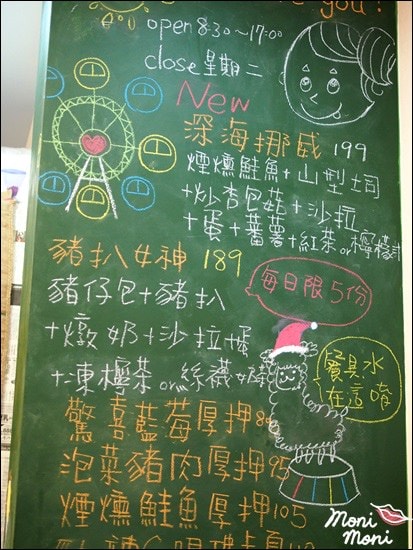 you!
open 8:30~17:00
close 星期二
New
深海挪威 199
煙燻鮭魚+山型土司
+炒杏包菇+沙拉
+蛋+蕃薯+紅茶or檸檬汁
豬扒女神 189
每日限5份
豬仔包+豬扒
+燉奶+沙拉+蛋
+凍檸茶or絲襪奶茶
餐具水
在這唷
驚喜藍莓厚押
泡菜豬肉厚押95
煙燻鮭魚厚押105
Moni
Moni